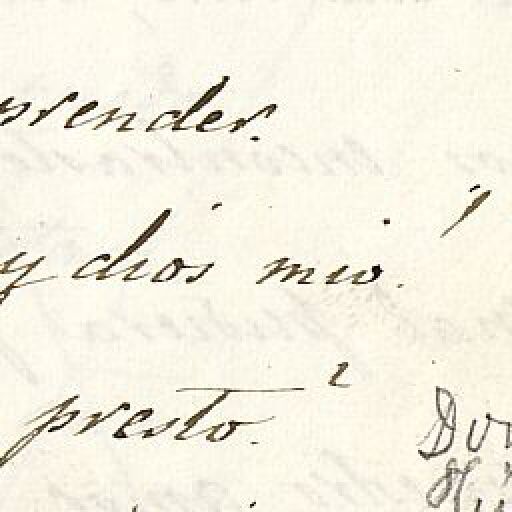 prender.
y dios mio.'
presto.